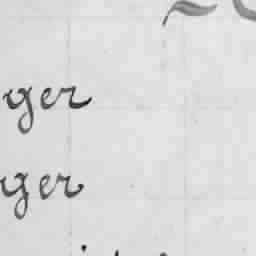 ger
ger